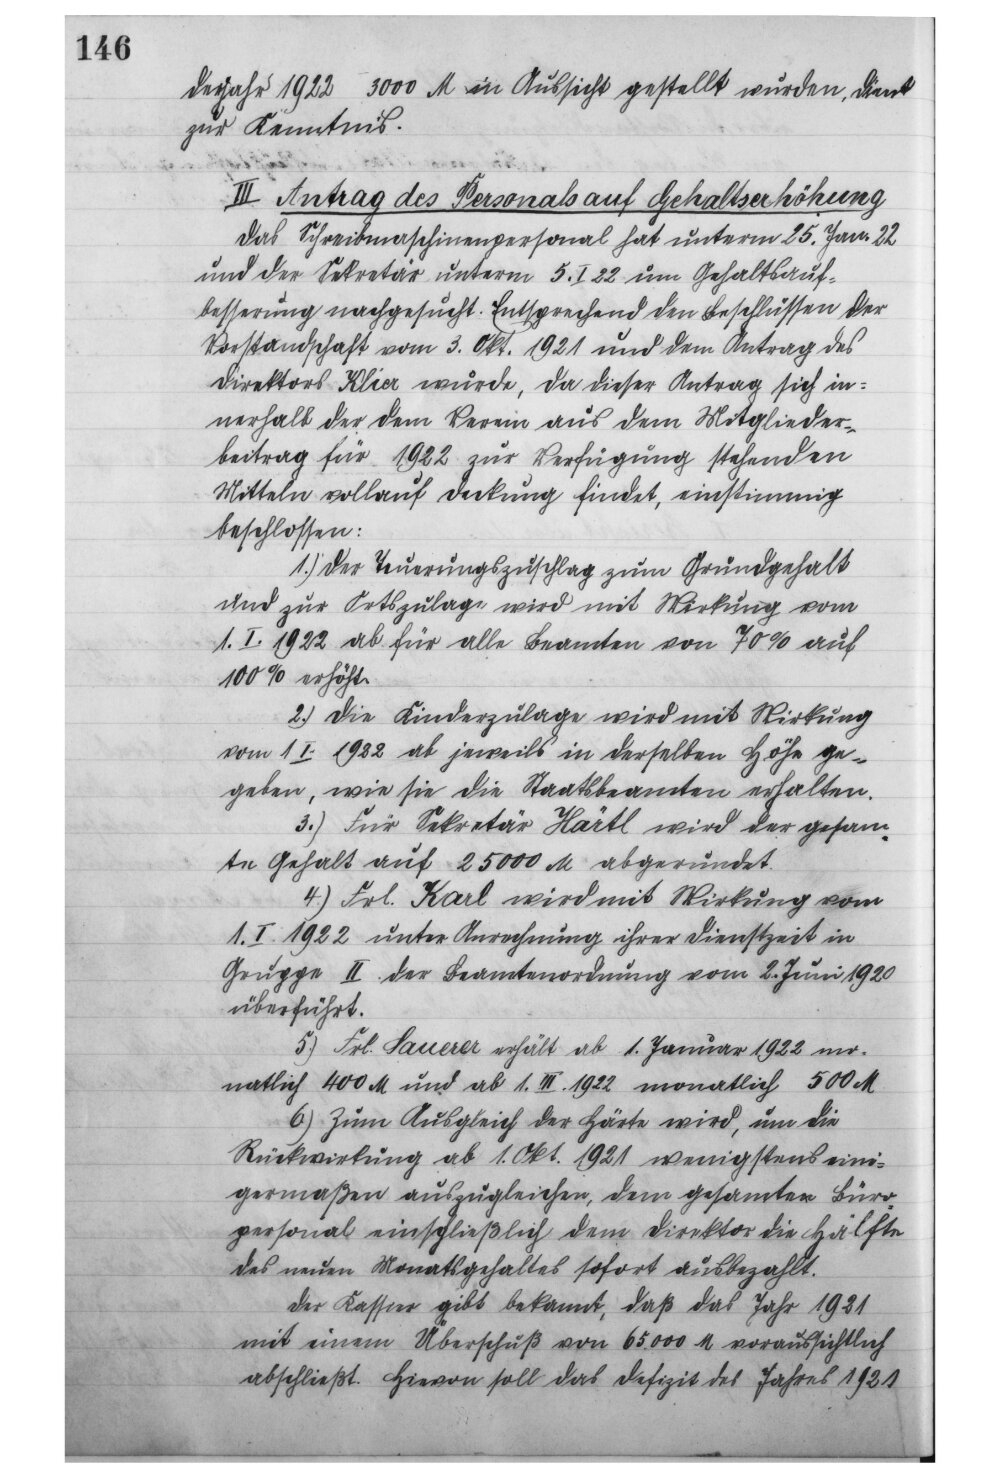 146
derjahr 1922 3000 M in Aussicht gestellt wurden, dient
zur Kenntnis.
III Antrag des Personals auf Gehaltserhöhung
Das Schreibmaschinenpersonal hat unterm 25. Jan. 22
und der Sekretär unterm 5. I 22 um Gehaltsauf=
besserung nachgesucht. Entsprechend den Beschlüssen der
Vorstandschaft vom 3. Okt. 1921 und dem Antrag des
Direktors Klier wurde, da dieser Antrag sich in=
nerhalb der dem Verein aus dem Mitglieder=
beitrag für 1922 zur Verfügung stehenden
Mitteln vollauf Deckung findet, einstimmig
beschlossen:
1.) Der Teuerungszuschlag zum Grundgehalt
und zur Ortszulage wird mit Wirkung vom
1. I. 1922 ab für alle Beamten von 70% auf
100% erhöht.
2.) Die Kinderzulage wird mit Wirkung
vom 1 I. 1922 ab jeweils in derselben Höhe ge=
geben, wie sie die Staatsbeamten erhalten.
3.) Für Sekretär Härtl wird der gesam=
te Gehalt auf 25000 M abgerundet.
4.) Frl. Karl wird mit Wirkung vom
1. I 1922 unter Anrechnung ihrer Dienstzeit in
Gruppe II der Beamtenordnung vom 2. Juni 1920
überführt.
5.) Frl. Sauerer erhält ab 1. Januar 1922 mo-
natlich 400 M und ab 1. III. 1922 monatlich 500 M
6.) Zum Ausgleich der Härte wird, um die
Rückwirkung ab 1. Okt. 1921 wenigstens eini=
germaßen auszugleichen, dem gesamten Büro=
personal einschließlich dem Direktor die Hälfte
des neuen Monatsgehaltes sofort ausbezahlt.
Der Kassier gibt bekannt, daß das Jahr 1921
mit einem Überschuß von 65000 M voraussichtlich
abschließt. Hievon soll das Defizit des Jahres 1921